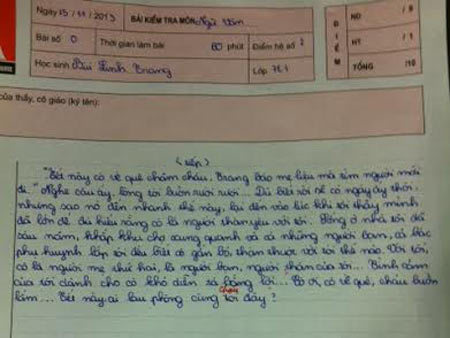 Ngày 15 / 11 / 2013 BÀI KIỂM TRA MÔN: Ngữ Văn
Bài số 0 Thời gian làm bài 60 phút Điểm hệ số 2
Học sinh Bùi Linh Trang Lớp 7E1
ĐIỂM
ND / 9
HT / 1
TỔNG /10
của thầy, cô giáo (ký tên):
(tiếp)
"Tết này cô về quê chăm cháu, Trang bảo mẹ liệu mà tìm người mới
đi." Nghe câu ấy, lòng tôi buồn rười rượi... Dù biết rồi sẽ có ngày ấy thôi,
nhưng sao nó đến nhanh thế này, lại đến vào lúc khi tôi thấy mình
đã lớn để đủ hiểu rằng cô là người thân yêu với tôi. Sống ở nhà tôi đã
sáu năm, khắp khu chợ xung quanh và cả những người bạn, cả bác
phụ huynh lớp tôi đều biết cô gắn bó, thân thuộc với tôi thế nào. Với tôi,
cô là người mẹ thứ hai, là người bạn, người thân của tôi... Tình cảm
của tôi dành cho cô khó diễn tả bằng lời... Cô ơi, cô về quê, cháu buồn
lắm.... Tết này ai lau phòng cùng tôi đây?
cháu